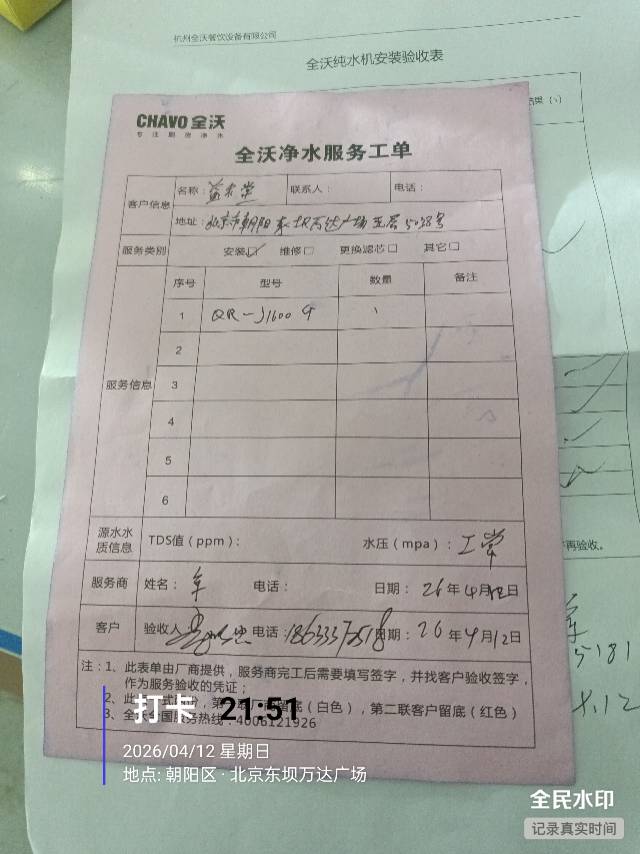 杭州全沃餐饮设备有限公司
全沃纯水机安装验收表
CHAVO 全沃
专注厨房净水
全沃净水服务工单
客户信息
名称： 联系人： 电话：
地址：北京市朝阳 东坝万达广场 五层 5028号
服务类别 安装☑ 维修□ 更换滤芯□ 其它□
服务信息
序号 型号 数量 备注
1 QR-J1600G 1
2
3
4
5
6
源水水质信息
TDS值（ppm）： 水压（mpa）：正常
服务商 姓名： 电话： 日期：26年4月12日
客户 验收人： 电话： 日期：26年4月12日
注：1、此表单由厂商提供，服务商完工后需要填写签字，并找客户验收签字，
作为服务验收的凭证；
留底（白色），第二联客户留底（红色）
3、 4006121926
再验收。
5181
4.12
打卡 21:51
2026/04/12 星期日
地点: 朝阳区·北京东坝万达广场
全民水印
记录真实时间